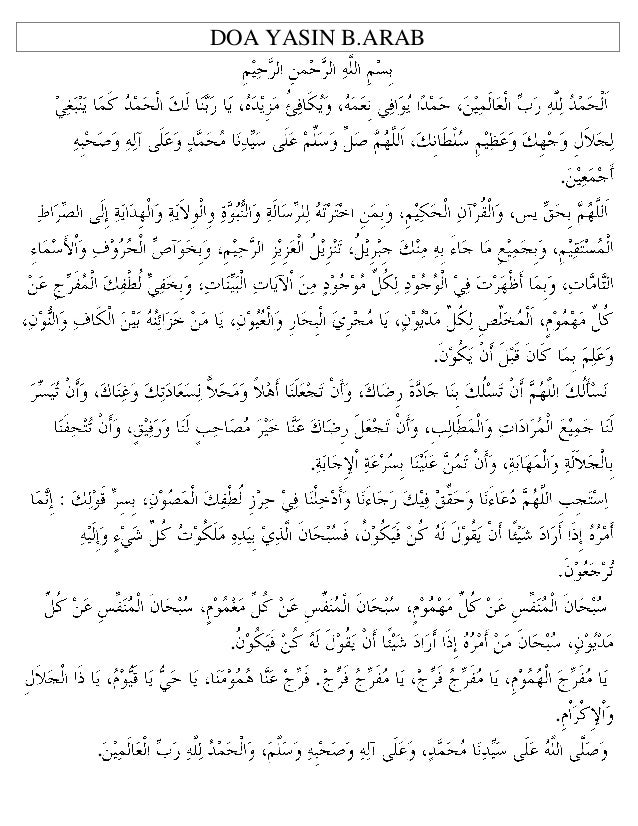 DOA YASIN B.ARAB
بِسْمِ اللَّهِ الرَّحْمنِ الرَّحِيْمِ
اَلْحَمْدُ لِلَّهِ رَبِّ الْعَالَمِيْنَ، حَمْدًا يُوَافِي نِعَمَهُ، وَيُكَافِئُ مَزِيْدَهُ، يَا رَبَّنَا لَكَ الْحَمْدُ كَمَا يَنْبَغِيْ
لِجَلاَلِ وَجْهِكَ وَعَظِيْمِ سُلْطَانِكَ، اَللَّهُمَّ صَلِّ وَسَلِّمْ عَلَى سَيِّدِنَا مُحَمَّدٍ وَعَلَى آلِهِ وَصَحْبِهِ
أَجْمَعِيْنَ.
اَللَّهُمَّ بِحَقِّ يس، وَالْقُرْآنِ الْحَكِيْمِ، وَبِمَنِ اخْتَرْتَهُ لِلرِّسَالَةِ وَالنُّبُوَّةِ وَالْوِلاَيَةِ وَالْهِدَايَةِ إِلَى الصِّرَاطِ
الْمُسْتَقِيْمِ، وَبِجَمِيْعِ مَا جَاءَ بِهِ مِنْكَ جِبْرِيْلُ، تَنْزِيْلُ الْعَزِيْزِ الرَّحِيْمِ، وَبِخَوَآصِّ الْحُرُوْفِ وَاْلأَسْمَاءِ
التَّامَّاتِ، وَبِمَا أَظْهَرْتَ فِيْ الْوُجُوْدِ لِكُلِّ مَوْجُوْدٍ مِنَ اْلآيَاتِ الْبَيِّنَاتِ، وَبِخَفِيِّ لُطْفِكَ الْمُفَرِّجِ عَنْ
كُلِّ مَهْمُوْمٍ، الْمُخَلِّصِ لِكُلِّ مَدْيُوْنٍ، يَا مُجْرِيَ الْبِحَارِ وَالْعُيُوْنِ، يَا مَنْ خَزَائِنُهُ بَيْنَ الْكَافِ وَالنُّوْنِ،
وَعَلِمَ بِمَا كَانَ قَبْلَ أَنْ يَكُوْنَ.
نَسْأَلُكَ اللَّهُمَّ أَنْ تَسْلُكَ بِنَا جَادَّةَ رِضَاكَ، وَأَنْ تَجْعَلَنَا أَهْلاً وَمَحَلاًّ لِسَعَادَتِكَ وَغِنَاكَ، وَأَنْ تُيَسِّرَ
لَنَا جَمِيْعَ الْمُرَادَاتِ وَالْمَطَالِبِ، وَأَنْ تَجْعَلَ رِضَاكَ عَنَّا خَيْرَ مُصَاحِبٍ لَنَا وَرَفِيْقٍ، وَأَنْ تُتْحِفَنَا
بِالْجَلاَلَةِ وَالْمَهَابَةِ، وَأَنْ تَمُنَّ عَلَيْنَا بِسُرْعَةِ اْلإِجَابَةِ.
اِسْتَجِبِ اللَّهُمَّ دُعَاءَنَا وَحَقِّقْ فِيْكَ رَجَاءَنَا وَأَدْخِلْنَا فِيْ حِرْزِ لُطْفِكَ الْمَصُوْنِ، بِسِرِّ قَوْلِكَ : إِنَّمَا
أَمْرُهُ إِذَا أَرَادَ شَيْئًا أَنْ يَقُوْلَ لَهُ كُنْ فَيَكُوْنُ، فَسُبْحَانَ الَّذِيْ بِيَدِهِ مَلَكُوْتُ كُلِّ شَيْءٍ وَإِلَيْهِ
تُرْجَعُوْنَ.
سُبْحَانَ الْمُنَفِّسِ عَنْ كُلِّ مَهْمُوْمٍ، سُبْحَانَ الْمُنَفِّسِ عَنْ كُلِّ مَغْمُوْمٍ، سُبْحَانَ الْمُنَفِّسِ عَنْ كُلِّ
مَدْيُوْنٍ، سُبْحَانَ مَنْ أَمْرُهُ إِذَا أَرَادَ شَيْئًا أَنْ يَقُوْلَ لَهُ كُنْ فَيَكُوْنُ.
يَا مُفَرِّجَ الْهُمُوْمِ، يَا مُفَرِّجُ فَرِّجْ، يَا مُفَرِّجُ فَرِّجْ. فَرِّجْ عَنَّا هُمُوْمَنَا، يَا حَيُّ يَا قَيُّوْمُ، يَا ذَا الْجَلاَلِ
وَاْلإِكْرَاْمِ.
وَصَلَّى اللَّهُ عَلَى سَيِّدِنَا مُحَمَّدٍ، وَعَلَى آلِهِ وَصَحْبِهِ وَسَلَّمَ، وَالْحَمْدُ لِلَّهِ رَبِّ الْعَالَمِيْنَ.